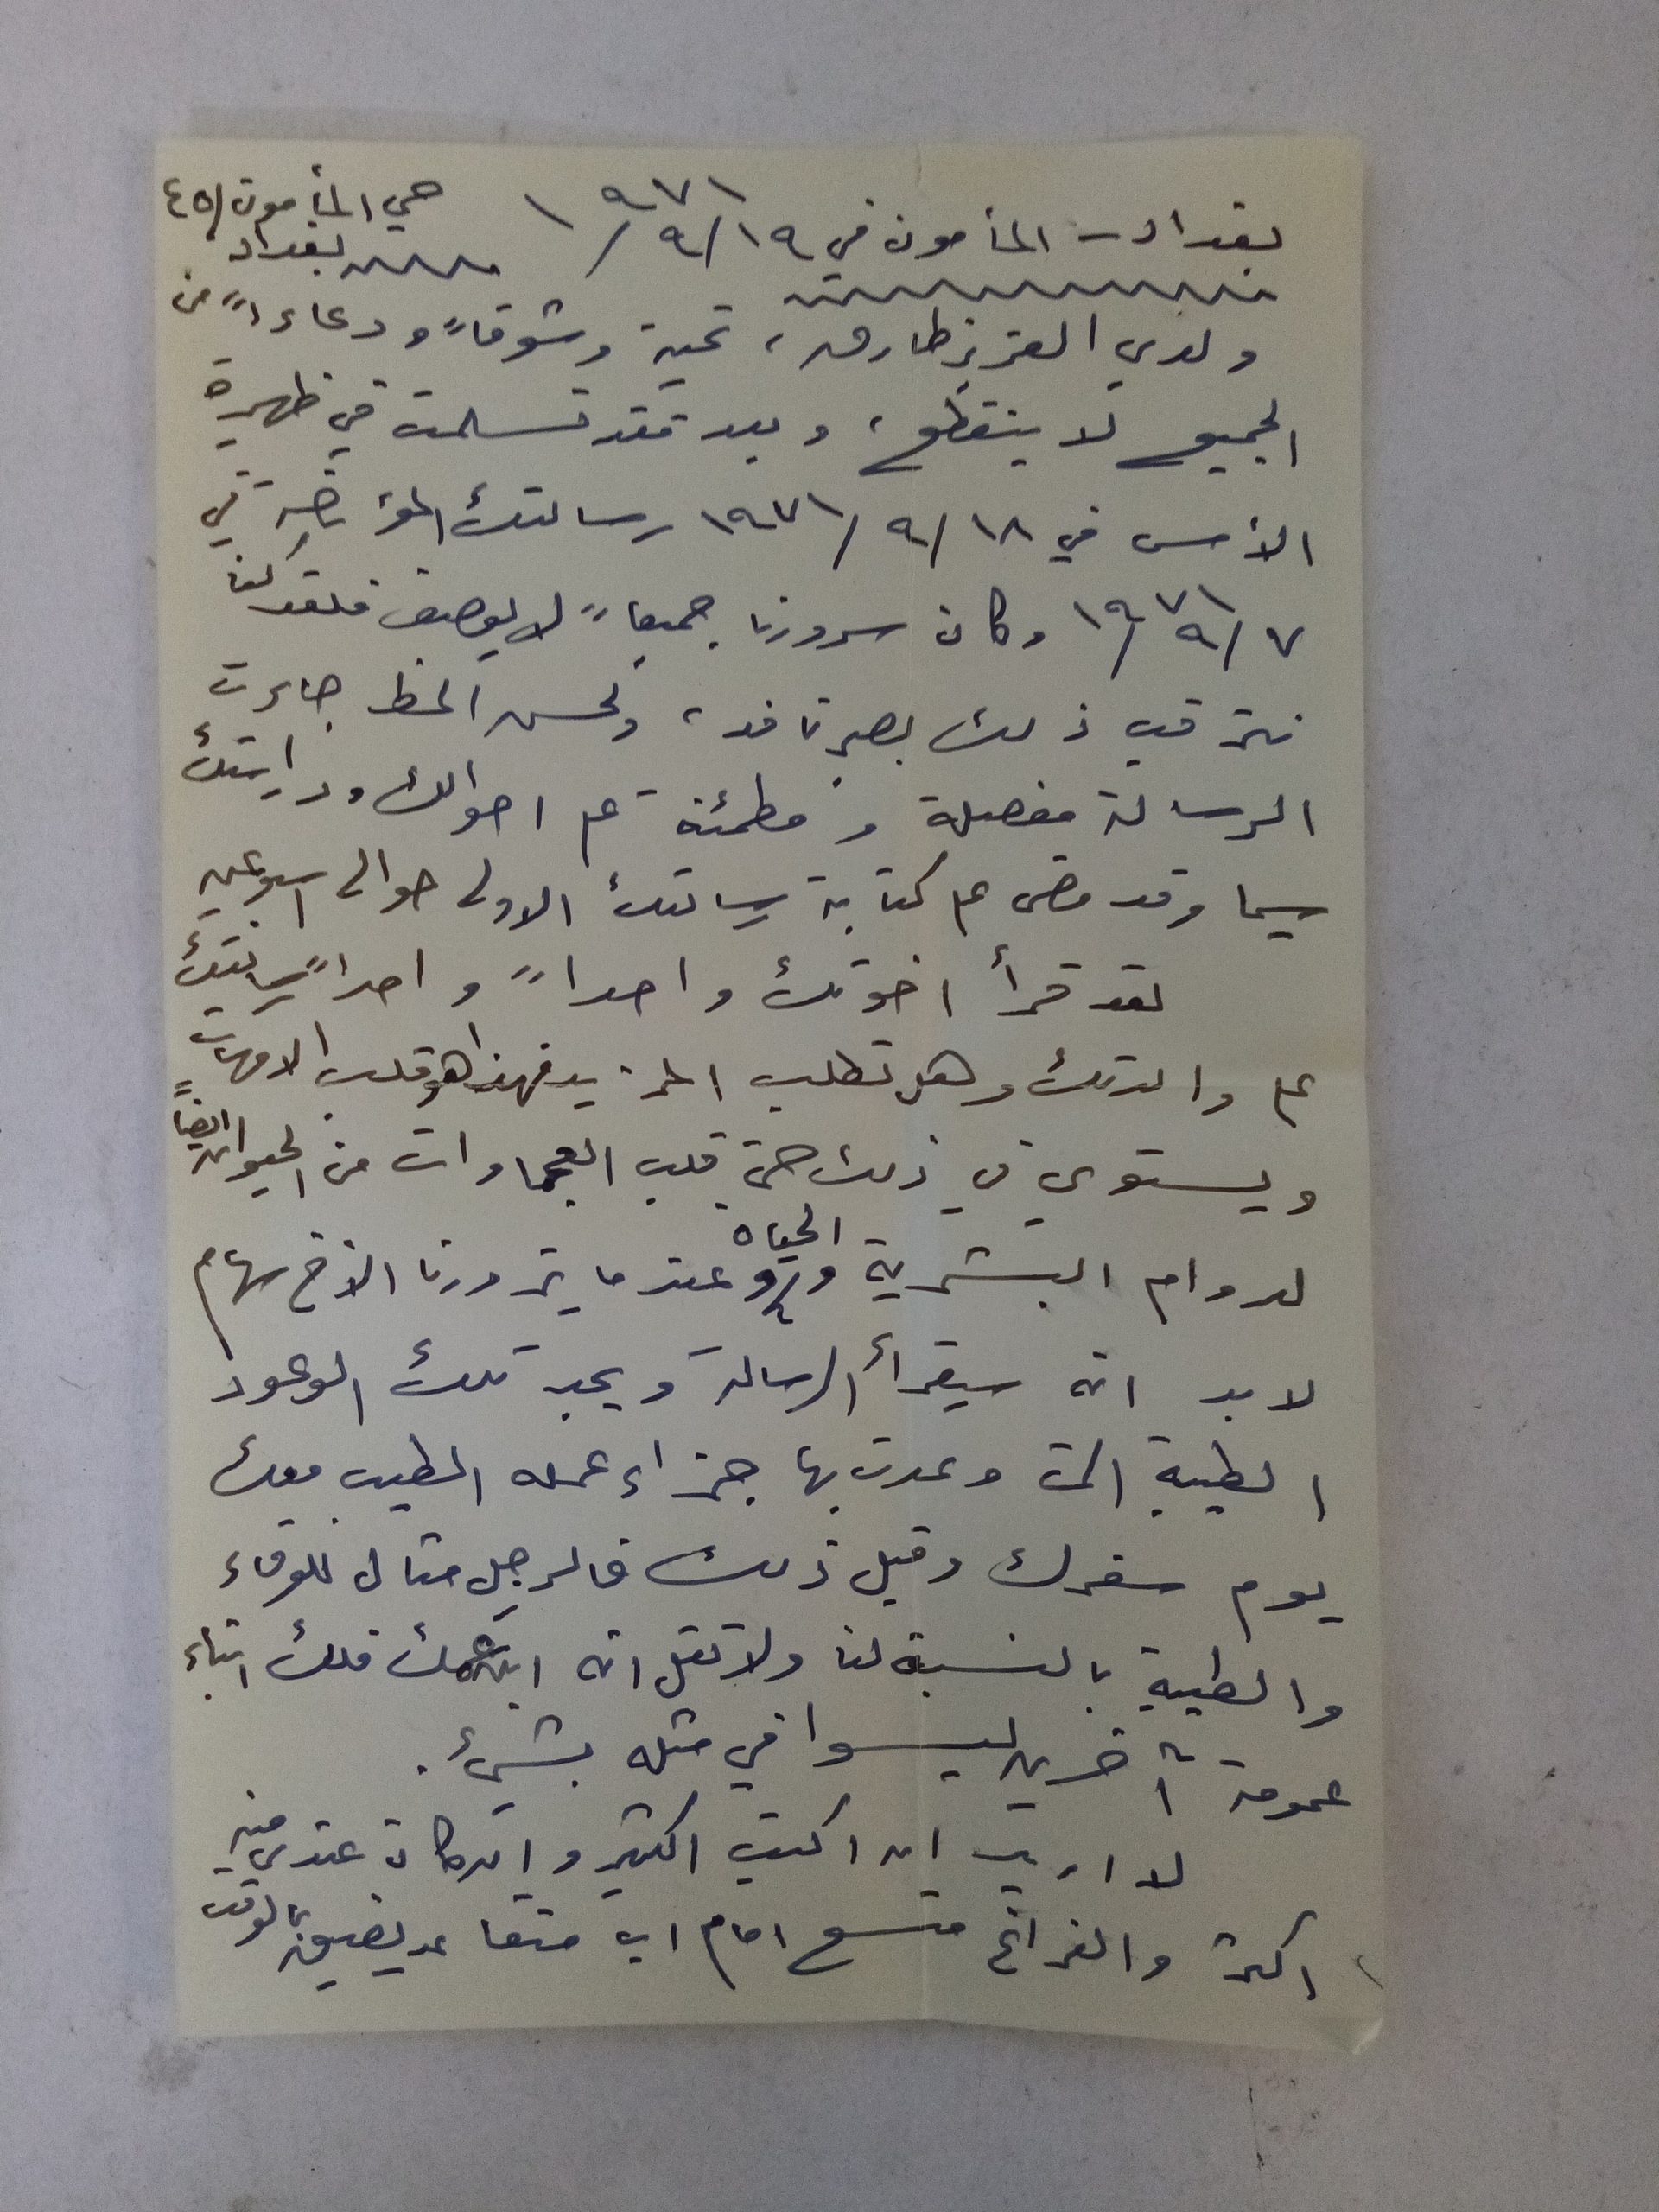 بغداد - المأمون في ١٩/٩/١٩٧١
حي المأمون/٤٥
بغداد
ولدي العزيز طارق، تحية وشوقاً ودعاءاً من
الجميع لا ينقطع، وبعد فقد تسلمت في ظهيرة
الأمس في ١٨/٩/١٩٧١ رسالتك المؤرخة في
٧/٩/١٩٧١ وكان سرورنا جميعاً لا يوصف فلقد كنا
نترقب ذلك بصبر نافد، ولحسن الحظ جاءت
الرسالة مفصلة ومطمئنة عن احوالك ودراستك
سيما وقد مضى على كتابة رسالتك الاولى حوالي اسبوعين
لقد قرأ اخوتك واحداً واحداً رسالتك
على والدتك وهي تطلب المزيد فهذا هو قلب الامهات
ويستوي في ذلك حتى قلب العجماوات من الحيوان ايضاً
لدوام البشرية والحياة وعندما يزورنا الأخ سهام
لا بد انه سيقرأ الرسالة ويجد تلك الوعود
الطيبة التي وعدت بها جزاء عمله الطيب معك
يوم سفرك وقبل ذلك فالرجل مثال للوفاء
والطيبة بالنسبة لنا ولا تقل انه ابن عمك فلك ابناء
عمومة آخرين ليسوا في مثله بشيء.
لا اريد ان اكتب اكثر وان كان عندي منه
اكثر والفراغ متسع امام اب متقاعد يضيق بالوقت